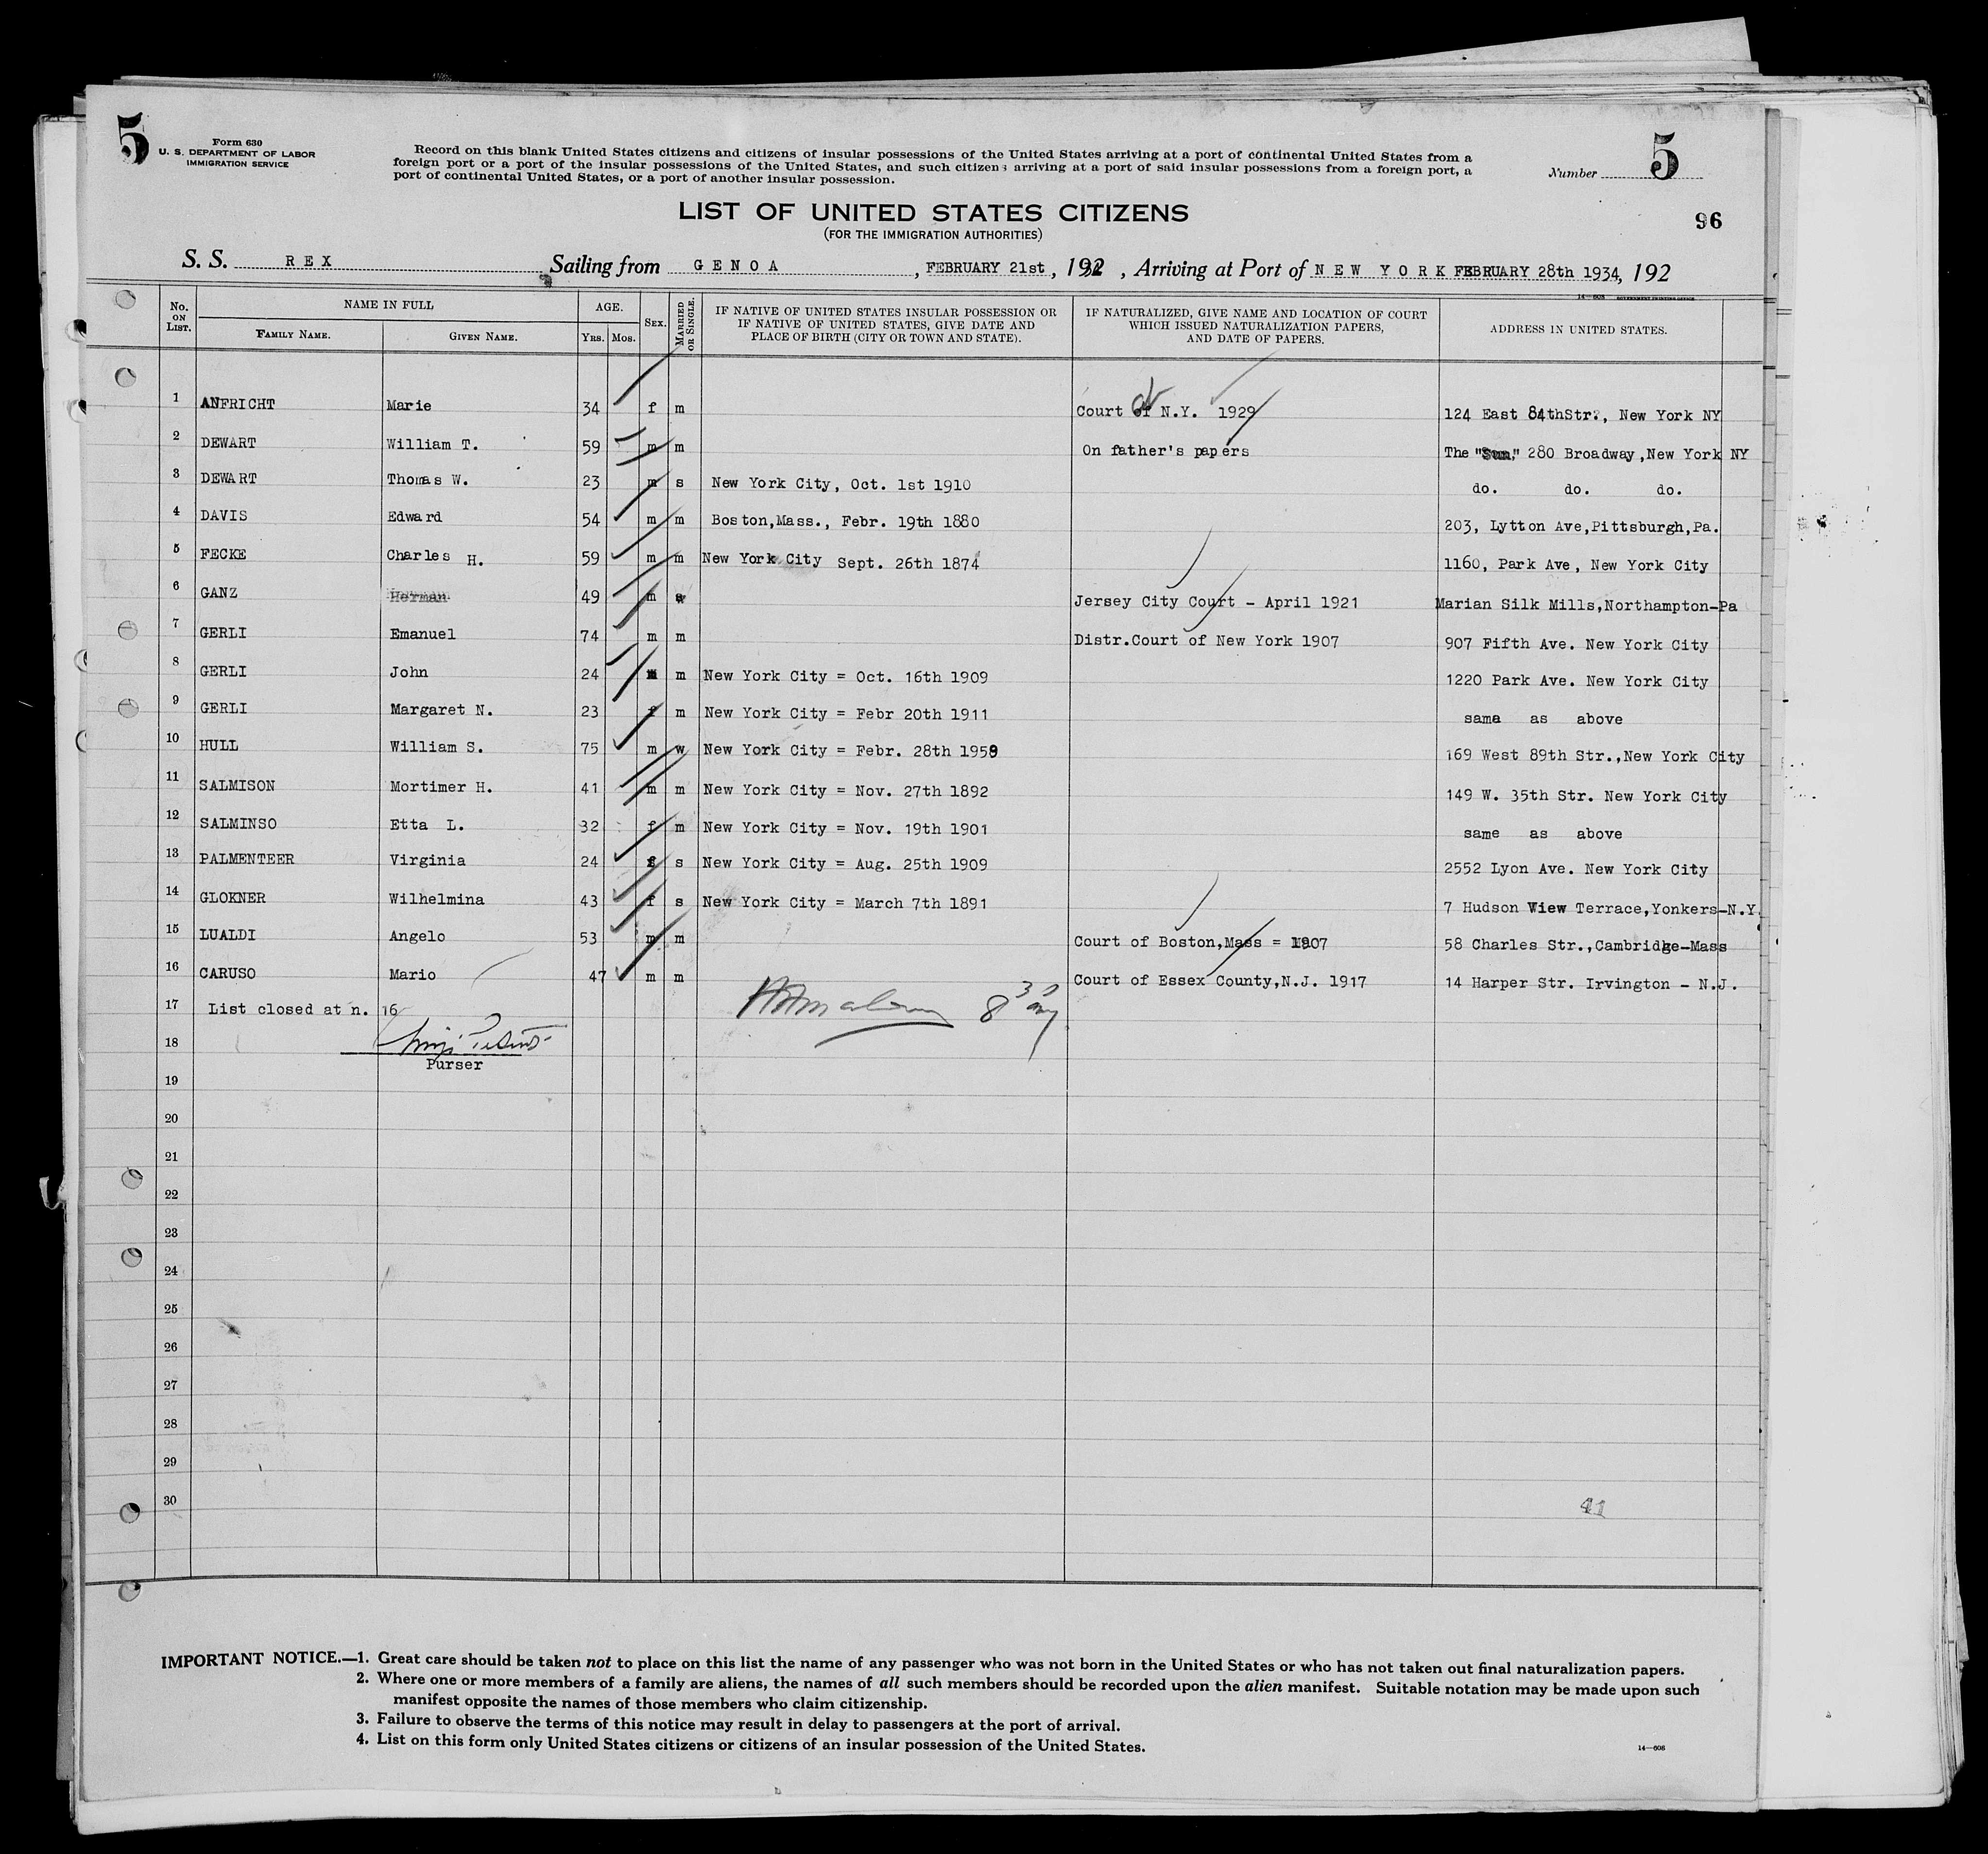 5
Form 630
U. S. DEPARTMENT OF LABOR
IMMIGRATION SERVICE
Record on this blank United States citizens and citizens of insular possessions of the United States arriving at a port of continental United States from a
foreign port or a port of the insular possessions of the United States, and such citizens arriving at a port of said insular possessions from a foreign port, a
port of continental United States, or a port of another insular possession.
Number 5
LIST OF UNITED STATES CITIZENS
(FOR THE IMMIGRATION AUTHORITIES)
96
S. S. REX Sailing from GENOA, FEBRUARY 21st, 192 , Arriving at Port of NEW YORK FEBRUARY 28th 1934, 192
14—608 GOVERNMENT PRINTING OFFICE
No. ON LIST. NAME IN FULL FAMILY NAME. GIVEN NAME. AGE. YRS. MOS. SEX. MARRIED OR SINGLE. IF NATIVE OF UNITED STATES INSULAR POSSESSION OR IF NATIVE OF UNITED STATES, GIVE DATE AND PLACE OF BIRTH (CITY OR TOWN AND STATE). IF NATURALIZED, GIVE NAME AND LOCATION OF COURT WHICH ISSUED NATURALIZATION PAPERS, AND DATE OF PAPERS. ADDRESS IN UNITED STATES.
1 ANFRICHT Marie 34 f m Court of N.Y. 1929 124 East 84thStr., New York NY
2 DEWART William T. 59 m m On father's papers The "Sun," 280 Broadway,New York NY
3 DEWART Thomas W. 23 m s New York City, Oct. 1st 1910 do. do. do.
4 DAVIS Edward 54 m m Boston,Mass., Febr. 19th 1880 203, Lytton Ave,Pittsburgh,Pa.
5 FECKE Charles H. 59 m m New York City Sept. 26th 1874 1160, Park Ave, New York City
6 GANZ Herman 49 m Jersey City Court - April 1921 Marian Silk Mills,Northampton-Pa
7 GERLI Emanuel 74 m m Distr.Court of New York 1907 907 Fifth Ave. New York City
8 GERLI John 24 m m New York City = Oct. 16th 1909 1220 Park Ave. New York City
9 GERLI Margaret N. 23 f m New York City = Febr 20th 1911 same as above
10 HULL William S. 75 m w New York City = Febr. 28th 1959 169 West 89th Str.,New York City
11 SALMISON Mortimer H. 41 m m New York City = Nov. 27th 1892 149 W. 35th Str. New York City
12 SALMINSO Etta L. 32 f m New York City = Nov. 19th 1901 same as above
13 PALMENTEER Virginia 24 f s New York City = Aug. 25th 1909 2552 Lyon Ave. New York City
14 GLOKNER Wilhelmina 43 f s New York City = March 7th 1891 7 Hudson View Terrace,Yonkers-N.Y.
15 LUALDI Angelo 53 m m Court of Boston,Mass = 1907 58 Charles Str.,Cambridge-Mass
16 CARUSO Mario 47 m m Court of Essex County,N.J. 1917 14 Harper Str. Irvington - N.J.
17 List closed at n. 16
8 30
18
Purser
19
20
21
22
23
24
25
26
27
28
29
30
41
IMPORTANT NOTICE.—1. Great care should be taken not to place on this list the name of any passenger who was not born in the United States or who has not taken out final naturalization papers.
2. Where one or more members of a family are aliens, the names of all such members should be recorded upon the alien manifest. Suitable notation may be made upon such
manifest opposite the names of those members who claim citizenship.
3. Failure to observe the terms of this notice may result in delay to passengers at the port of arrival.
4. List on this form only United States citizens or citizens of an insular possession of the United States.
14—608